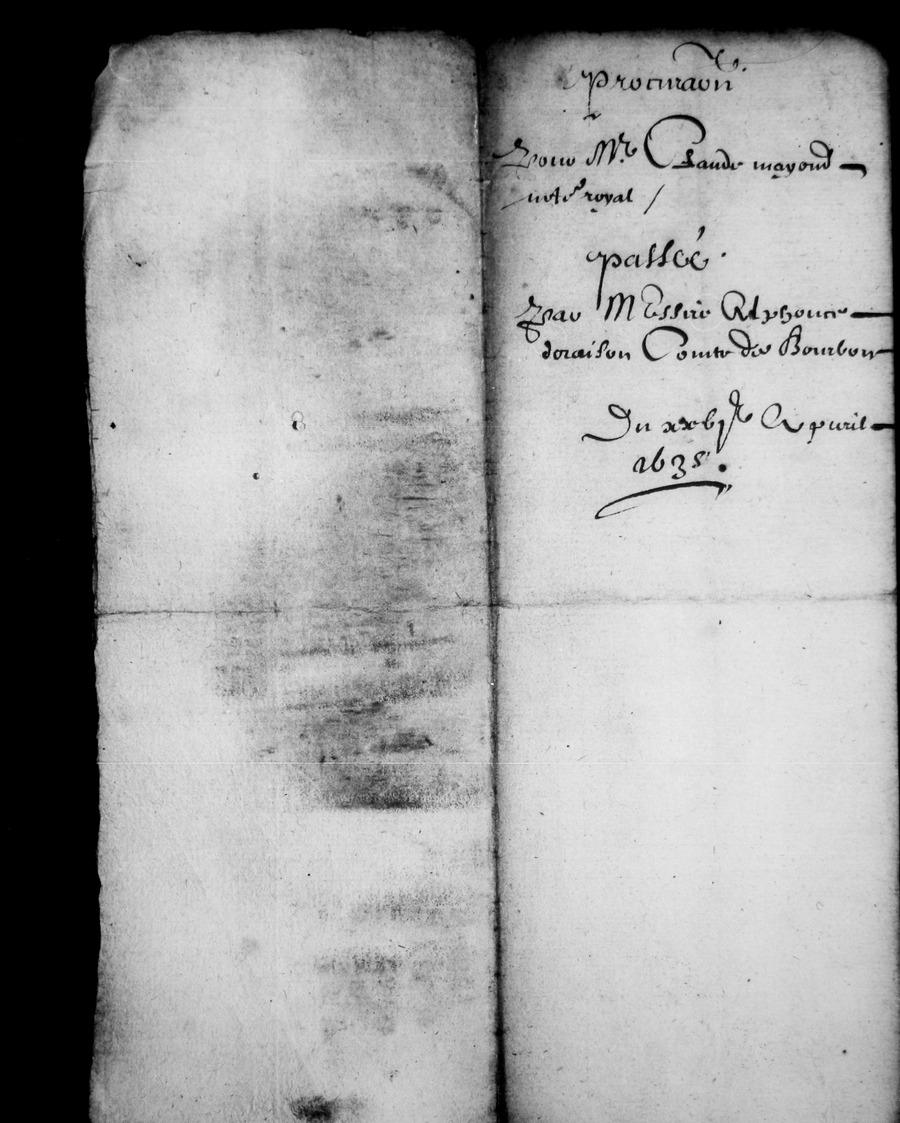 procuraōn
Pour Mre Claude mayoud
notre royal /
passeé.
Par MEssire Alphonce
doraison Comte de Bourbon
Du xxbje Apuril
1635.